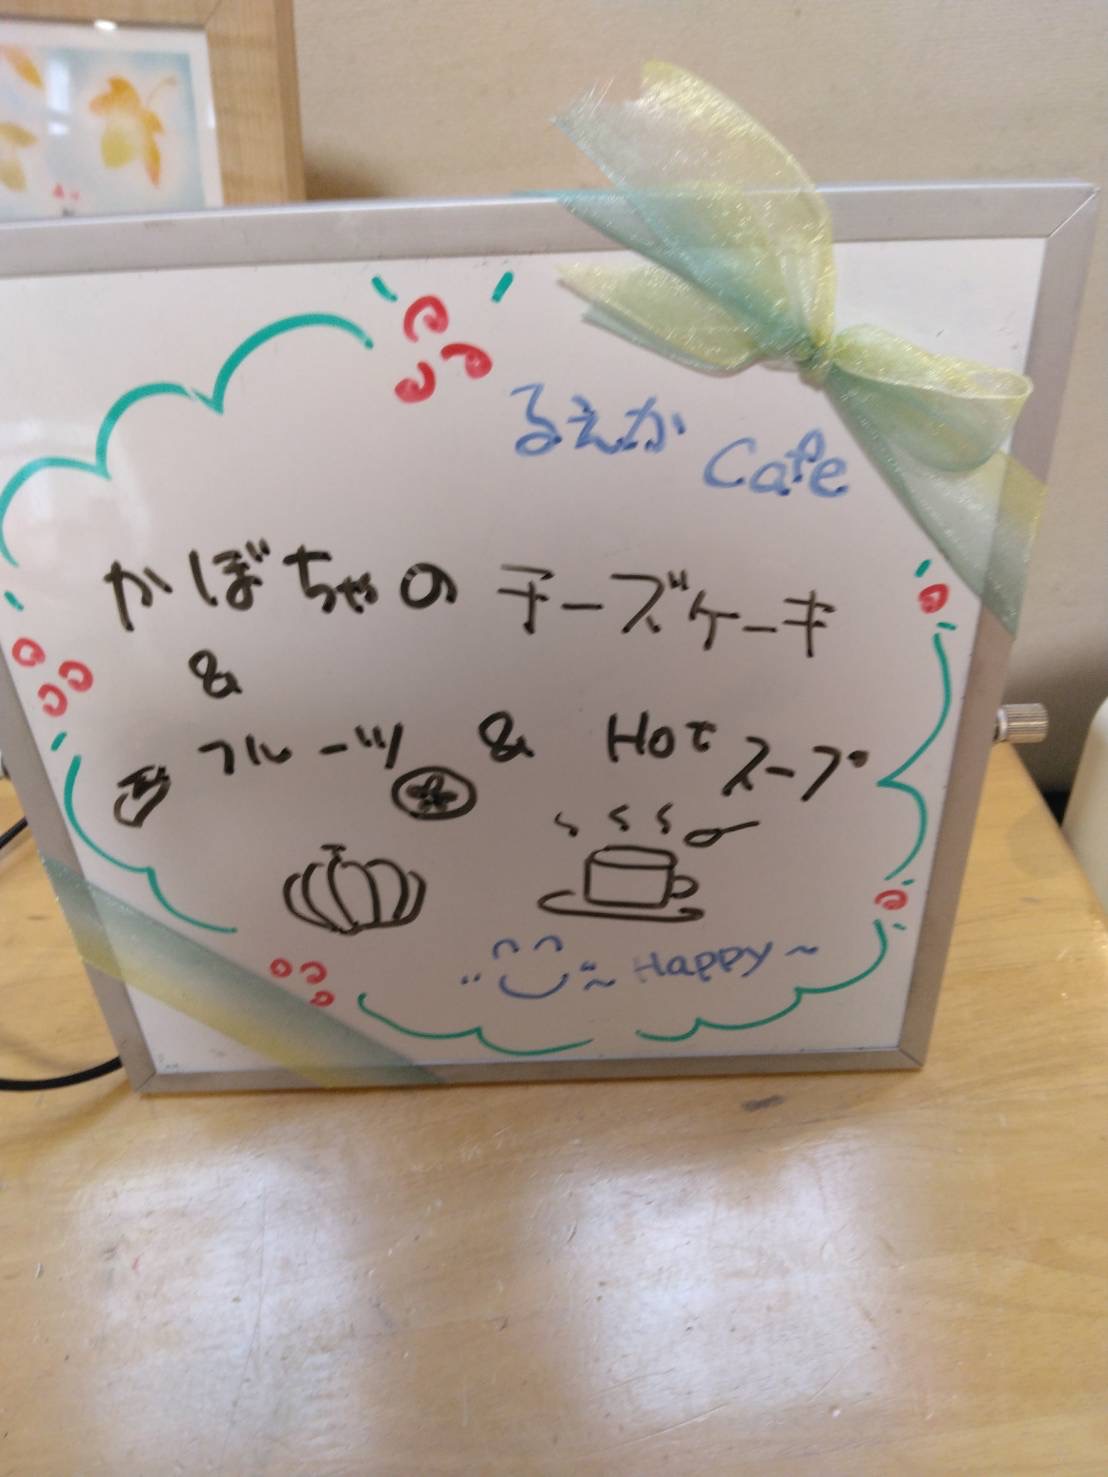 るえか Cafe
かぼちゃの チーズケーキ
&
フルーツ & Hot スープ
~ Happy ~